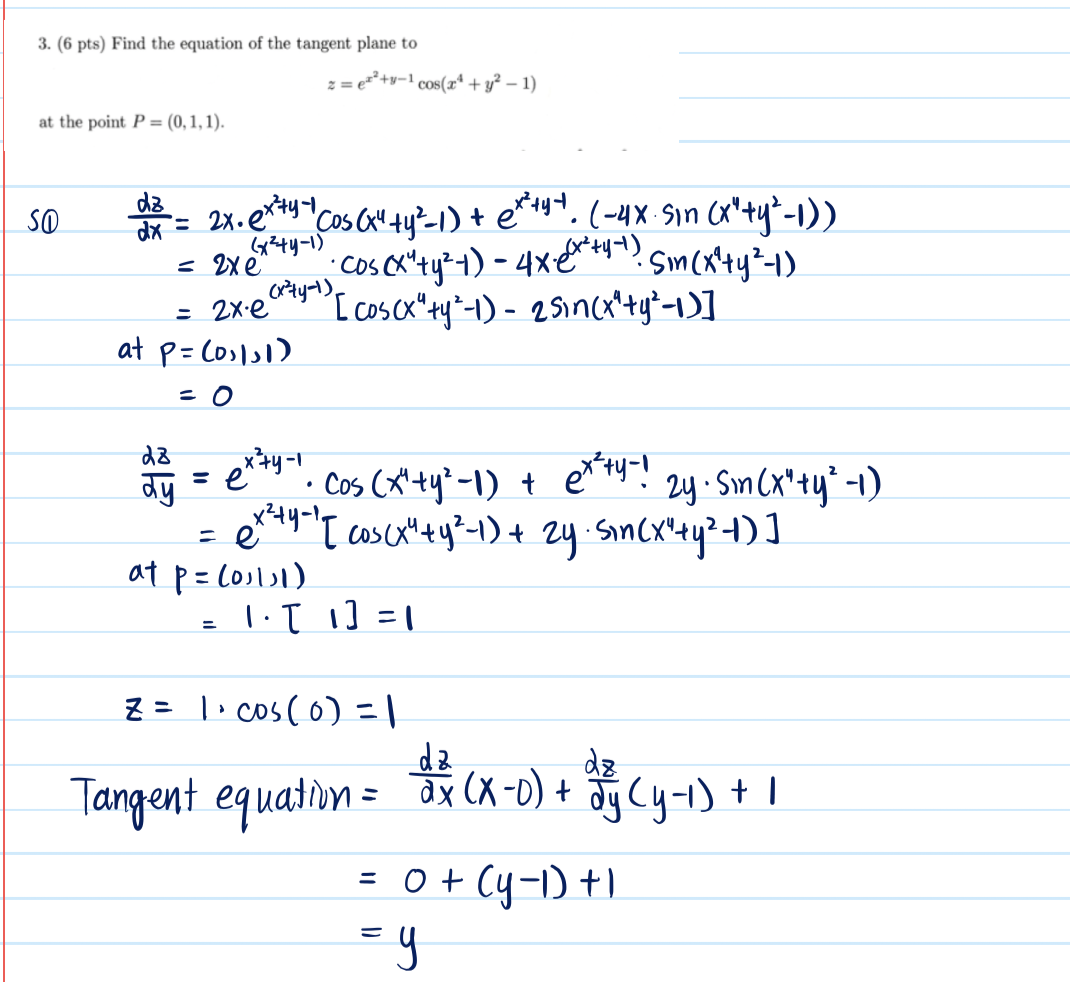 3. (6 pts) Find the equation of the tangent plane to
z = e^{x²+y−1} cos(x⁴ + y² − 1)
at the point P = (0, 1, 1).
SO① dz/dx = 2x·e^{x²+y-1} cos(x⁴+y²-1) + e^{x²+y-1}·(-4x·sin(x⁴+y²-1))
= 2xe^{(x²+y-1)}·cos(x⁴+y²-1) - 4x·e^{(x²+y-1)}·sin(x⁴+y²-1)
= 2x·e^{(x²+y-1)}[cos(x⁴+y²-1) - 2sin(x⁴+y²-1)]
at p=(0,1,1)
= 0
dz/dy = e^{x²+y-1}·cos(x⁴+y²-1) + e^{x²+y-1}·2y·sin(x⁴+y²-1)
= e^{x²+y-1}[cos(x⁴+y²-1) + 2y·sin(x⁴+y²-1)]
at p=(0,1,1)
= 1·[ 1] = 1
z = 1·cos(0) = 1
Tangent equation = dz/dx (x-0) + dz/dy (y-1) + 1
= 0 + (y-1) + 1
= y